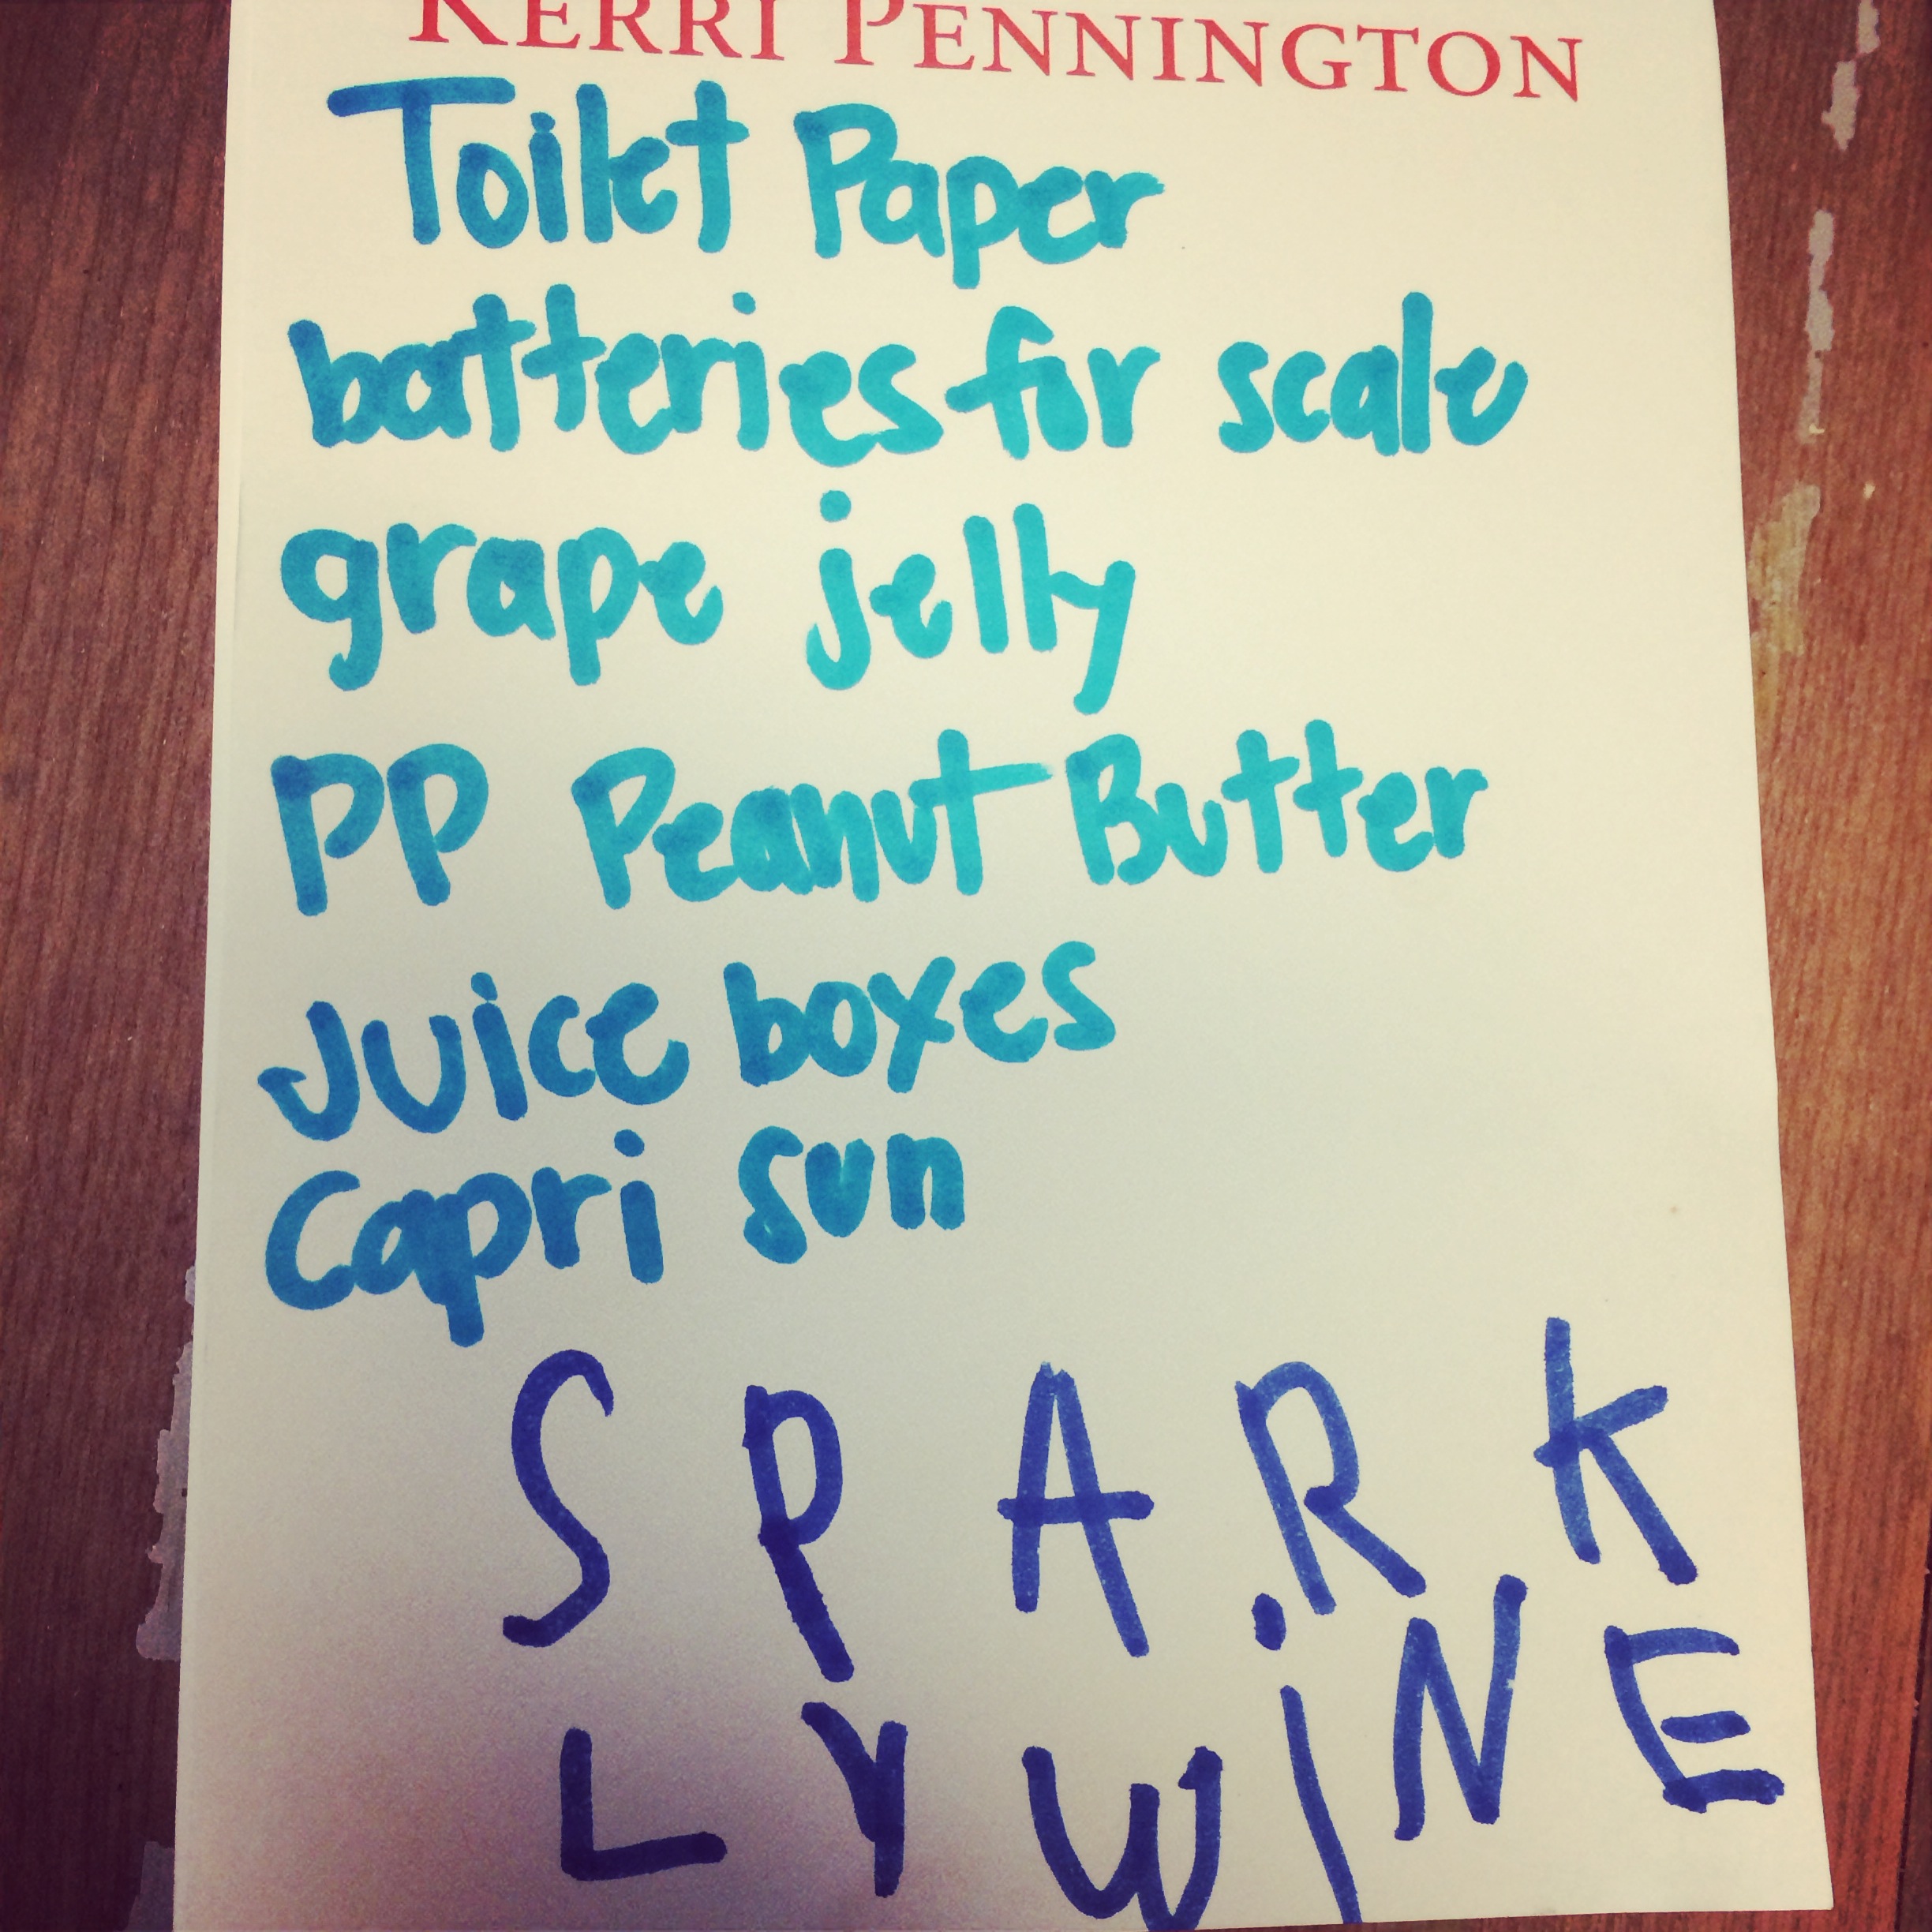 KERRI PENNINGTON
Toilet Paper
batteries for scale
grape jelly
PP Peanut Butter
Juice boxes
Capri Sun
SPARK
LY WiNE